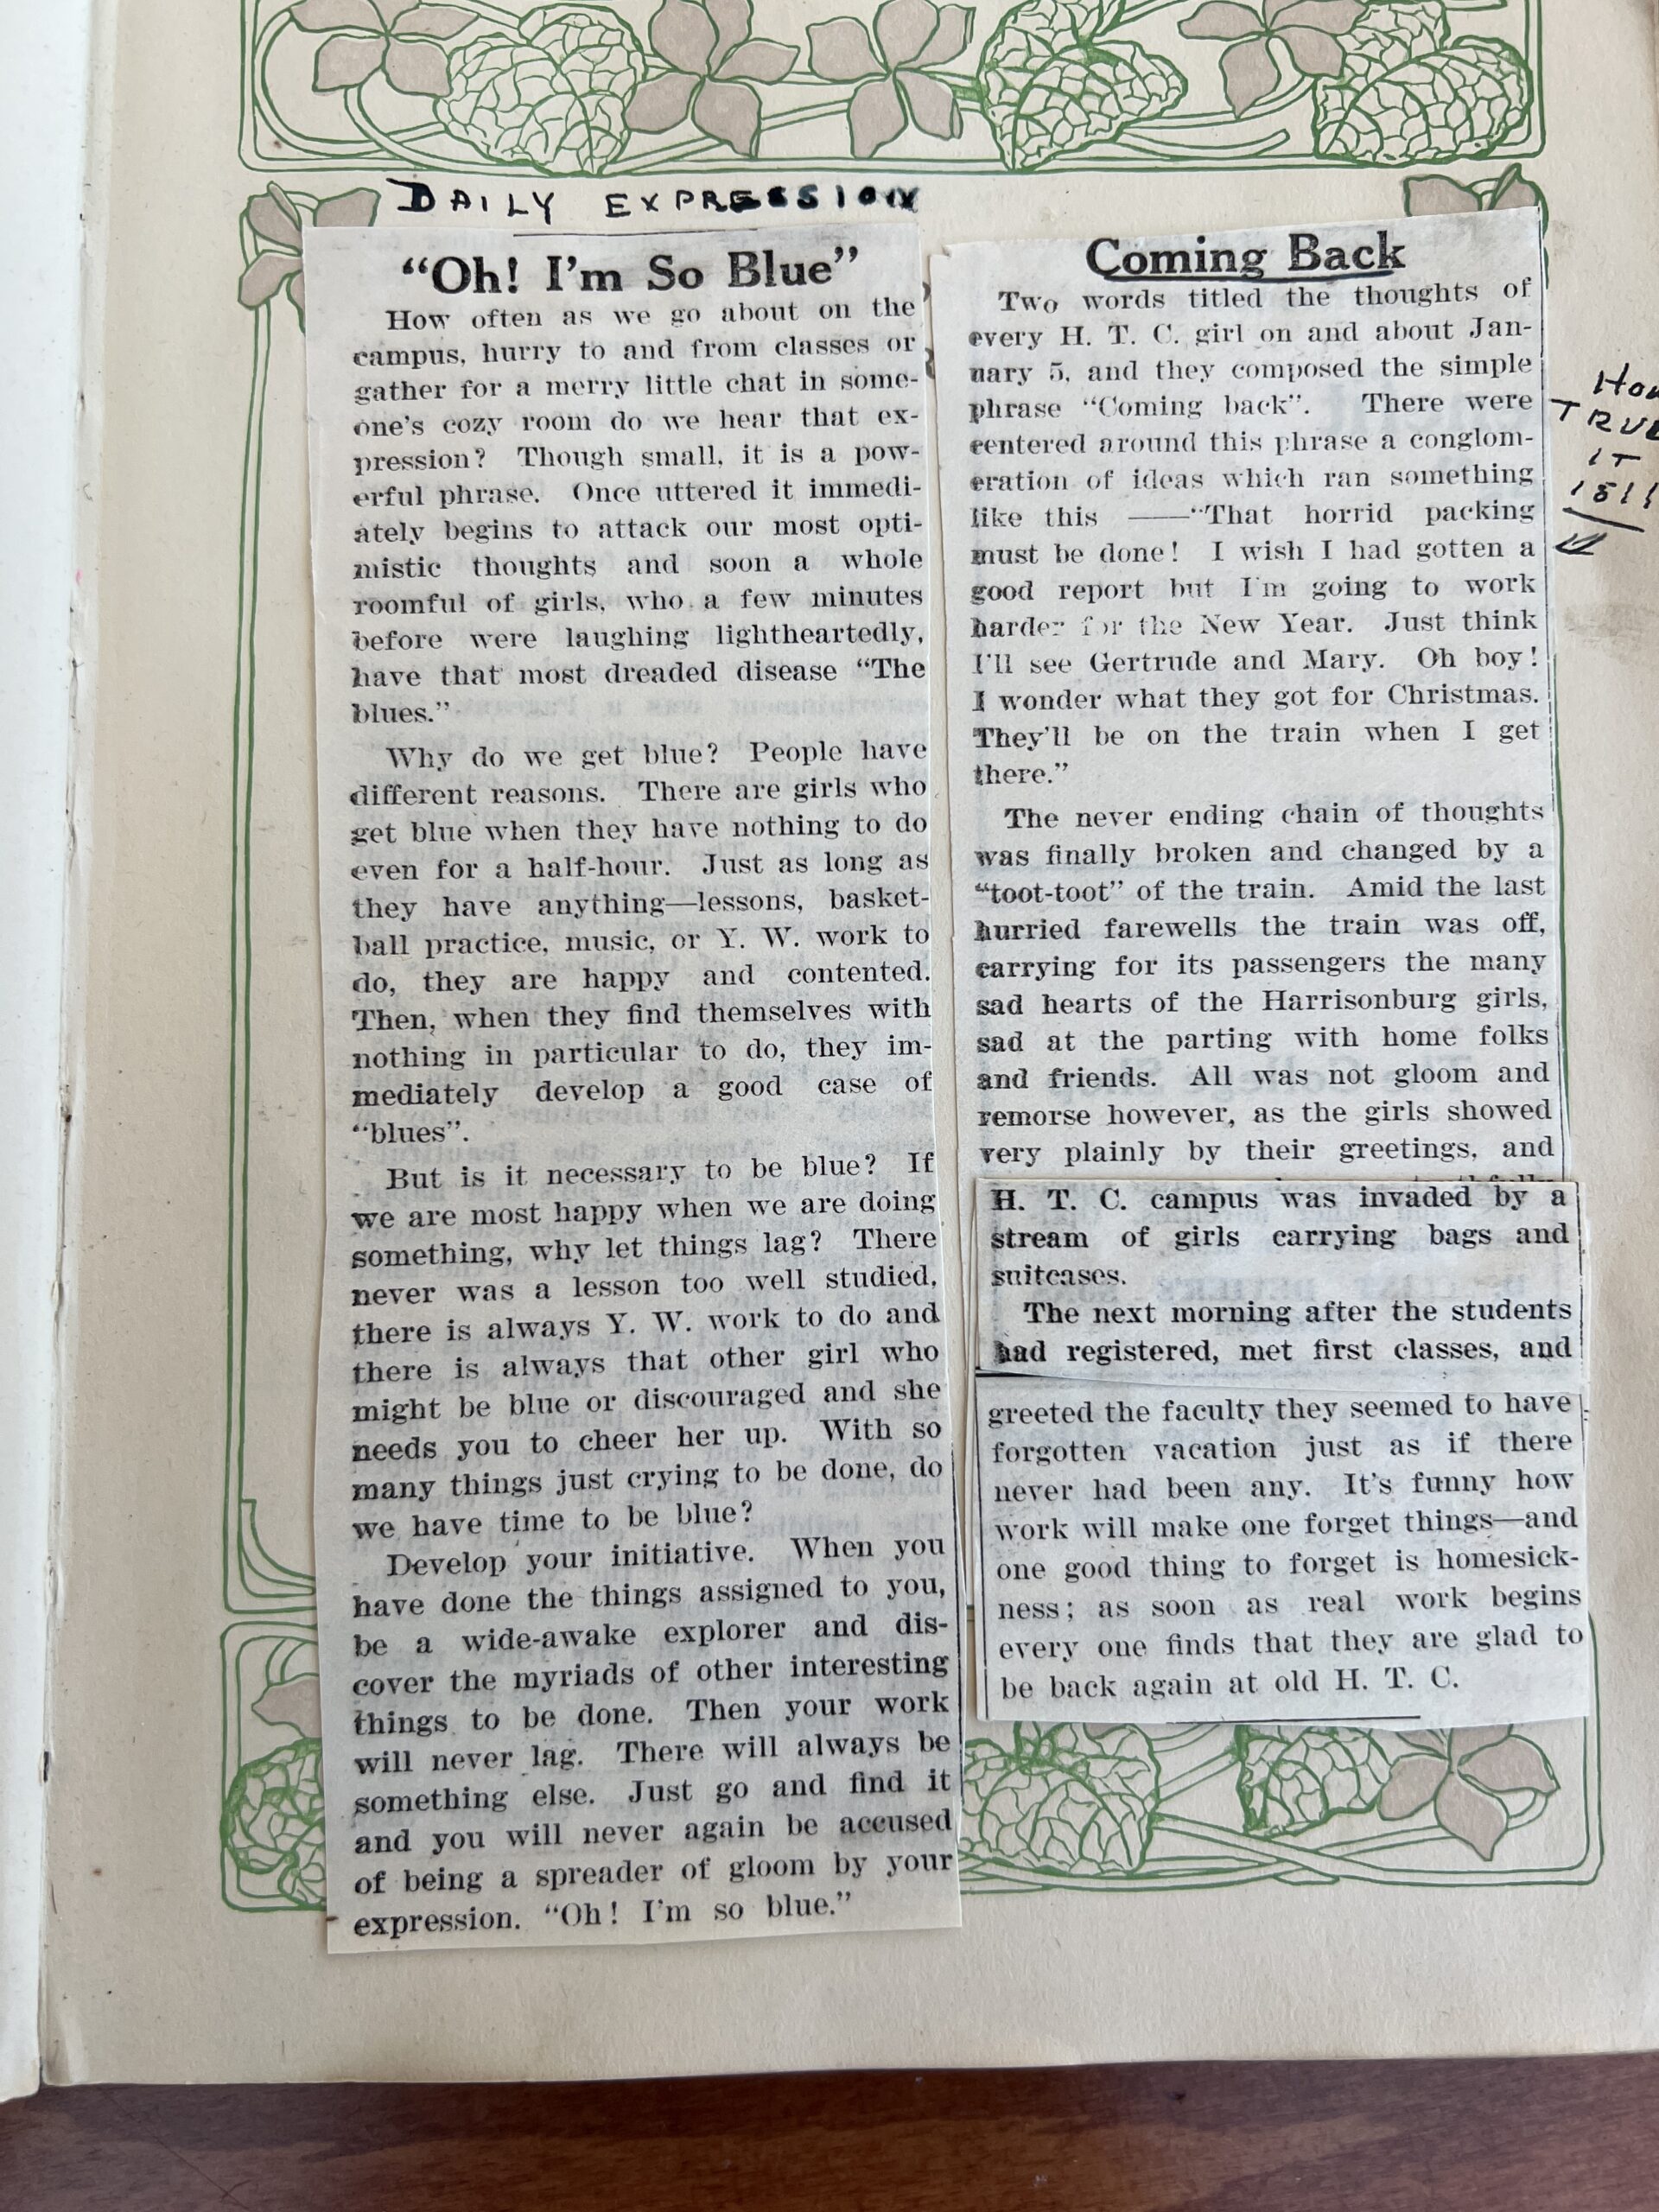 DAILY EXPRESSION
“Oh! I'm So Blue”
How often as we go about on the
campus, hurry to and from classes or
gather for a merry little chat in some-
one's cozy room do we hear that ex-
pression? Though small, it is a pow-
erful phrase. Once uttered it immedi-
ately begins to attack our most opti-
mistic thoughts and soon a whole
roomful of girls, who a few minutes
before were laughing lightheartedly,
have that most dreaded disease “The
blues.”
Why do we get blue? People have
different reasons. There are girls who
get blue when they have nothing to do
even for a half-hour. Just as long as
they have anything—lessons, basket-
ball practice, music, or Y. W. work to
do, they are happy and contented.
Then, when they find themselves with
nothing in particular to do, they im-
mediately develop a good case of
“blues”.
But is it necessary to be blue? If
we are most happy when we are doing
something, why let things lag? There
never was a lesson too well studied,
there is always Y. W. work to do and
there is always that other girl who
might be blue or discouraged and she
needs you to cheer her up. With so
many things just crying to be done, do
we have time to be blue?
Develop your initiative. When you
have done the things assigned to you,
be a wide-awake explorer and dis-
cover the myriads of other interesting
things to be done. Then your work
will never lag. There will always be
something else. Just go and find it
and you will never again be accused
of being a spreader of gloom by your
expression. “Oh! I'm so blue.”
Coming Back
Two words titled the thoughts of
every H. T. C. girl on and about Jan-
uary 5, and they composed the simple
phrase “Coming back”. There were
centered around this phrase a conglom-
eration of ideas which ran something
like this ——“That horrid packing
must be done! I wish I had gotten a
good report but I'm going to work
harder for the New Year. Just think
I'll see Gertrude and Mary. Oh boy!
I wonder what they got for Christmas.
They'll be on the train when I get
there.”
The never ending chain of thoughts
was finally broken and changed by a
“toot-toot” of the train. Amid the last
hurried farewells the train was off,
carrying for its passengers the many
sad hearts of the Harrisonburg girls,
sad at the parting with home folks
and friends. All was not gloom and
remorse however, as the girls showed
very plainly by their greetings, and
H. T. C. campus was invaded by a
stream of girls carrying bags and
suitcases.
The next morning after the students
had registered, met first classes, and
greeted the faculty they seemed to have
forgotten vacation just as if there
never had been any. It's funny how
work will make one forget things—and
one good thing to forget is homesick-
ness; as soon as real work begins
every one finds that they are glad to
be back again at old H. T. C.
TRUE
IT
IS!!